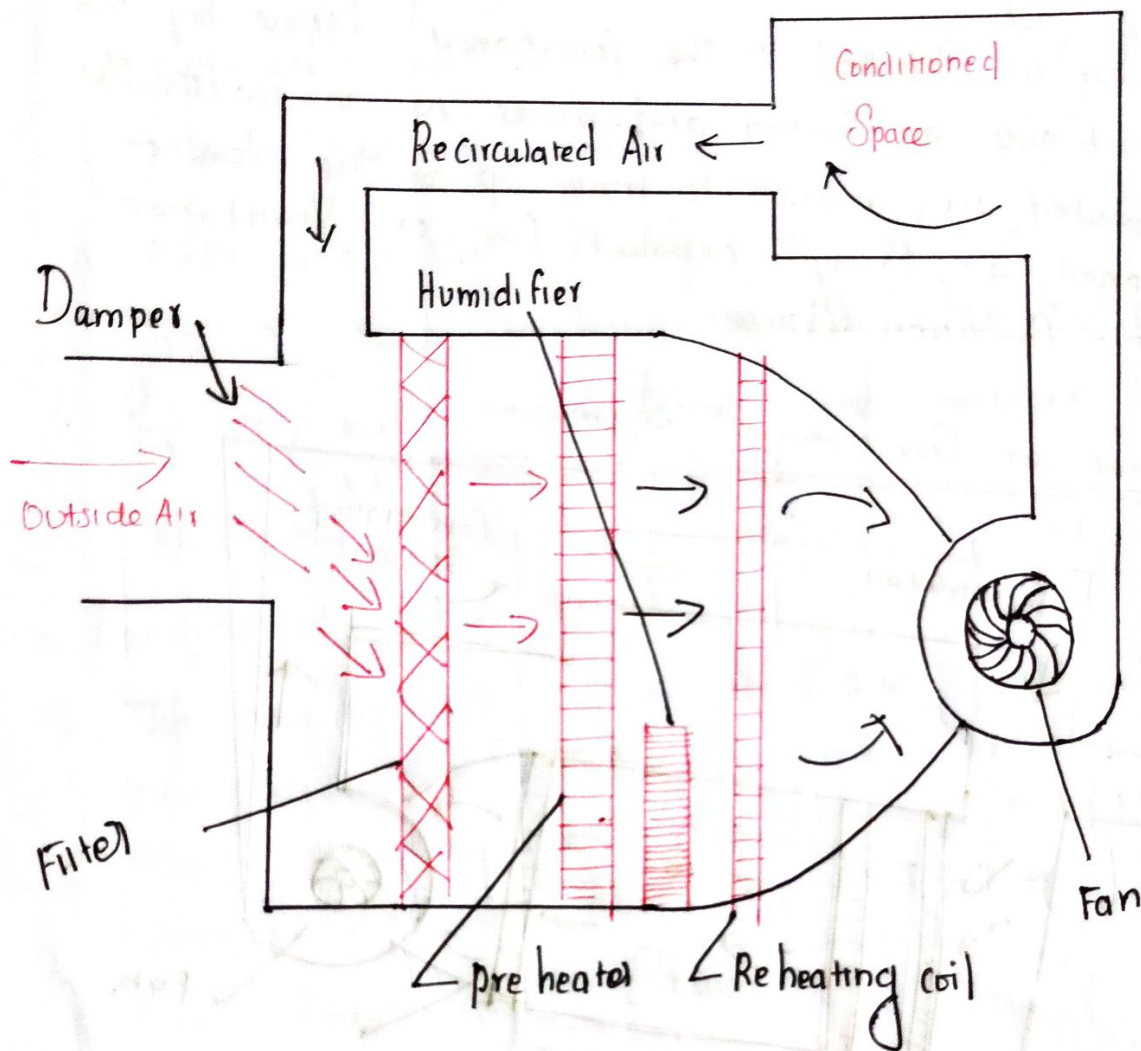 Conditioned
Space
Recirculated Air
Humidifier
Damper
Outside Air
Filter
Pre heater
Reheating coil
Fan